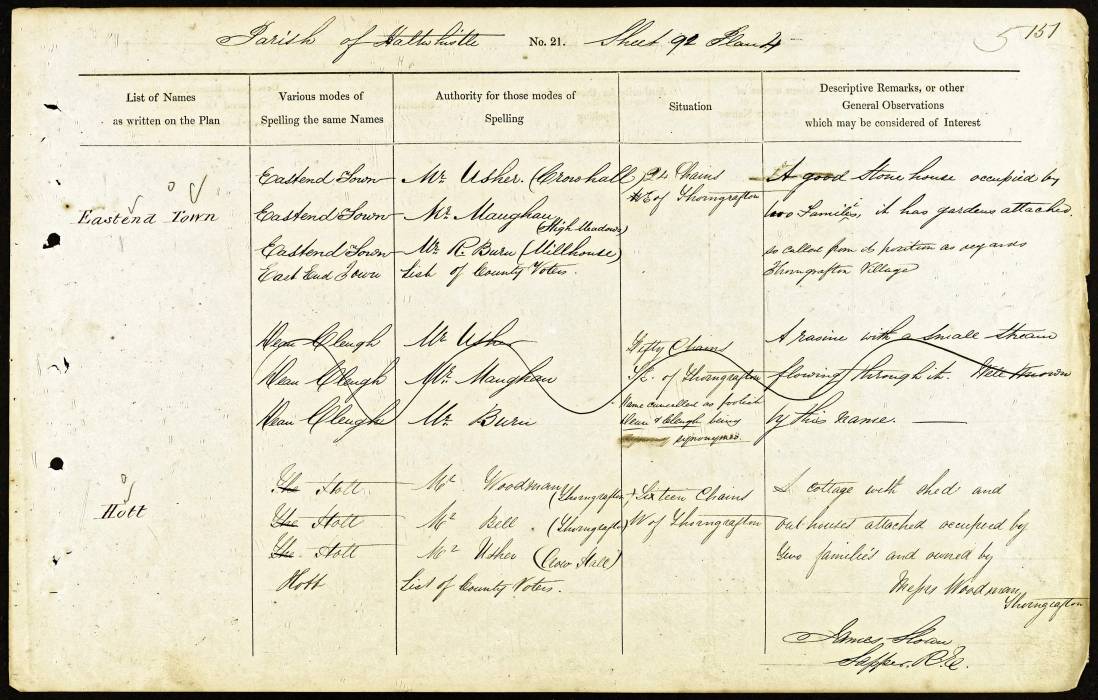 Parish of Haltwhistle No. 21. Sheet 92 Plan 4
5 157
List of Names
as written on the Plan
Various modes of
Spelling the same Names
Authority for those modes of
Spelling
Situation
Descriptive Remarks, or other
General Observations
which may be considered of Interest
Eastend Town
Eastend Town Mr. Usher. (Crowhall)
Eastend Town Mr. Maughan (High Meadows)
Eastend Town Mr. R. Burn (Millhouse)
East End Town List of County Voters.
24 Chains
of Thorngrafton
A good Stone house occupied by
two Families, it has gardens attached,
so called from its position as regards
Thorngrafton Village
Dean Cleugh Mr. Usher
Dean Cleugh Mr. Maughan
Dean Cleugh Mr. Burn
Fifty Chains
of Thorngrafton
Name cancelled as foolish
Dean & Cleugh being
synonymes.
A ravine with a small stream
flowing through it. Well known
by this name.
Hott
The Hott Mr Woodman (Thorngrafton)
The Hott Mr Bell (Thorngrafton)
The Hott Mr Usher (Crow Hall)
Hott List of County Voters.
Sixteen Chains
W of Thorngrafton
A cottage with shed and
out houses attached occupied by
two families and owned by
Messrs Woodman,
Thorngrafton
James Sloan
Sapper. R.E.